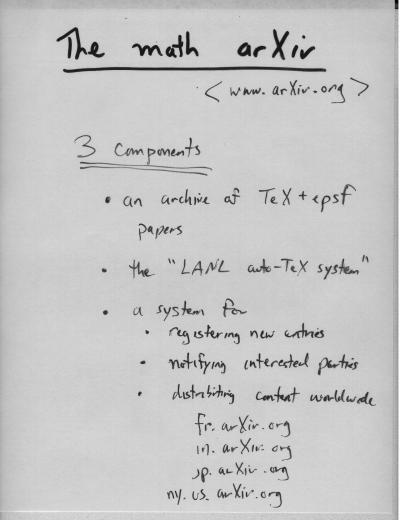 The math arXiv
< www.arXiv.org >
3 components
• an archive of TeX + epsf
papers
• the "LANL auto-TeX system"
• a system for
• registering new entries
• notifying interested parties
• distribiting content worldwide
fr.arXiv.org
in.arXiv.org
jp.arXiv.org
ny.us.arXiv.org